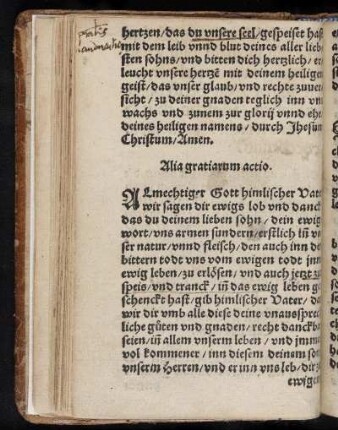 hertzen/das du vnsere seel/gespeiset has
mit dem leib vnnd blut deines aller lieb
sten sohns/vnd bitten dich hertzlich/er
leucht vnsere hertzē mit deinem heiligen
geist/das vnser glaub/vnd rechte zuuer
sicht/zu deiner gnaden teglich inn vn
wachs vnd zunem zur glorij vnnd eh
deines heiligen namens/durch Jhesum
Christum/Amen.
Alia gratiarum actio.
ALmechtiger Gott himlischer Vate
wir sagen dir ewigs lob vnd danck
das du deinem lieben sohn/dein ewig
wort/vns armen sundern/erstlich iñ vn
ser natur/vnnd fleisch/den auch inn de
bittern todt vns vom ewigen todt jnn
ewig leben/zu erlösen/vnd auch jetzt zu
speis/vnd tranck/iñ das ewig leben ge
schenckt hast/gib himlischer Vater/da
wir dir vmb alle diese deine vnaussprec
liche güten vnd gnaden/recht danckba
seien/iñ allem vnserm leben/vnd jmme
vol kommener/inn diesem deinem son
vnserm Herren/vnd er inn vns leb/dir z
ewigen